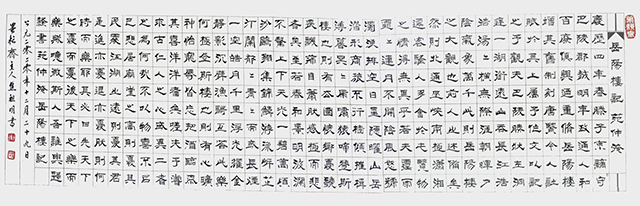 岳陽樓記范仲淹
慶曆四年春滕子京謫守
巴陵郡越明年政通人和
百廢俱興乃重修岳陽樓
增其舊制刻唐賢今人詩
賦於其上屬予作文以記
之予觀夫巴陵勝狀在洞
庭一湖銜遠山吞長江浩
浩湯=橫無際涯朝暉夕
陰氣象萬千此則岳陽樓
之大觀也前人之述備矣
然則北通巫峽南極瀟湘
遷客騷人多會於此覽物
之情得無異乎若夫霪雨
霏=連月不開陰風怒號
濁浪排空日星隱曜山岳
潛形商旅不行檣傾楫摧
薄暮冥=虎嘯猿啼登斯
樓也則有去國懷鄉憂讒
畏譏滿目蕭然感極而悲
者矣至若春和景明波瀾
不驚上下天光一碧萬頃
沙鷗翔集錦鱗游泳岸芷
汀蘭郁=青=而或長煙
一空皓月千里浮光躍金
靜影沉璧漁歌互答此樂
何極登斯樓也則有心曠
神怡寵辱偕忘把酒臨風
其喜洋洋者矣嗟夫予嘗
求古仁人之心或異二者
之為何哉不以物喜不以
己悲居廟堂之高則憂其
民處江湖之遠則憂其君
是進亦憂退亦憂然則何
時而樂耶其必曰先天下
之憂而憂後天下之樂而
樂歟噫微斯人吾誰與歸
范仲淹岳陽樓記
公元二零二零年十二月二十九日
齋主人書